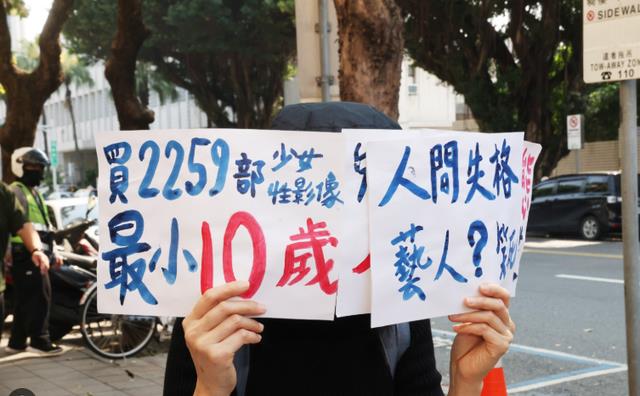 買2259部少女
性影像
最小10歲
人間失格
藝人?
SIDEWAL
違者拖吊
TOW-AWAY ZON
110